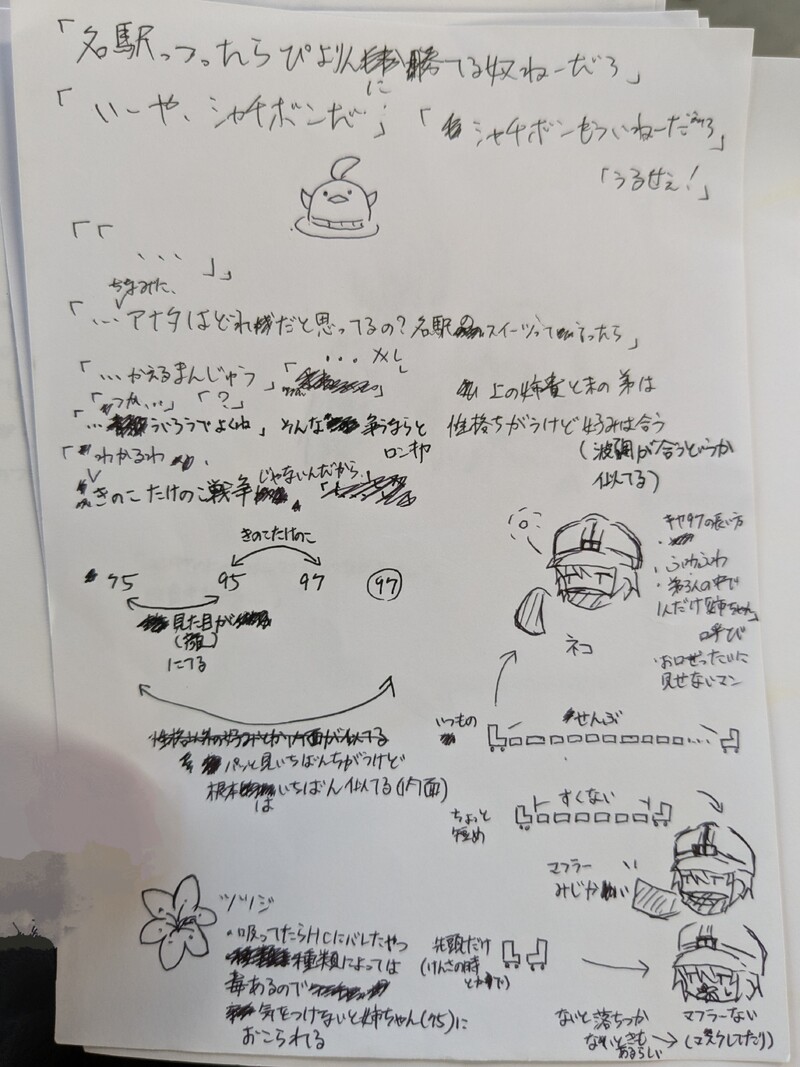 「名駅っつったらぴよりんに勝てる奴ねーだろ」
「いーや、シャチボンだ」
「シャチボンもういねーだろ」
「うるせぇ！」
「「
...
」」
ちなみに、
「...アナタはどれだと思ってるの？名駅スイーツって言ったら」
「...かえるまんじゅう」
「...××し
「つか...」「？」
「...ういろうでよくね」そんな争うならと
「わかるわ
ロンキヤ
きのこたけのこ戦争じゃないんだから、
上の姉貴と末の弟は
性格ちがうけど好みは合う
(波調が合うというか
似てる)
きのこたけのこ
95 95 97 97
見た目が
(顔)
にてる
パッと見いちばんちがうけど
根本はいちばん似てる(内面)
ネコ
キャタクの長い方
・ふわふわ
・弟3人の中で
1人だけ「姉ちゃん」
呼び
・お口ぜったいに
見せないマン
いつもの
ぜんぶ
ちょっと
短め
すくない
マフラー
みじかい
先頭だけ
(けんさの時
とかで)
ないと落ちつか
ないときも
あるらしい
マフラーない
(マスクしてたり)
ツツジ
・吸ってたらHCにバレたやつ
種類によっては
毒あるので
気をつけないと姉ちゃん(95)に
おこられる